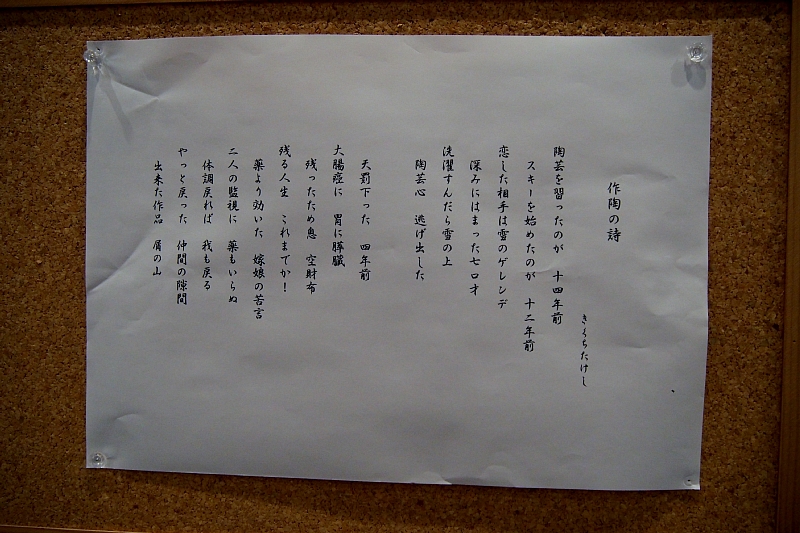 作陶の詩
きくちたけし
陶芸を習ったのが 十四年前
スキーを始めたのが 十二年前
恋した相手は雪のゲレンデ
深みにはまった七ロ才
洗濯すんだら雪の上
陶芸心 逃げ出した
天罰下った 四年前
大腸癌に 胃に膵臓
残ったため息 空財布
残る人生 これまでか!
薬より効いた 嫁娘の苦言
二人の監視に 薬もいらぬ
体調戻れば 我も戻る
やっと戻った 仲間の隙間
出来た作品 屑の山